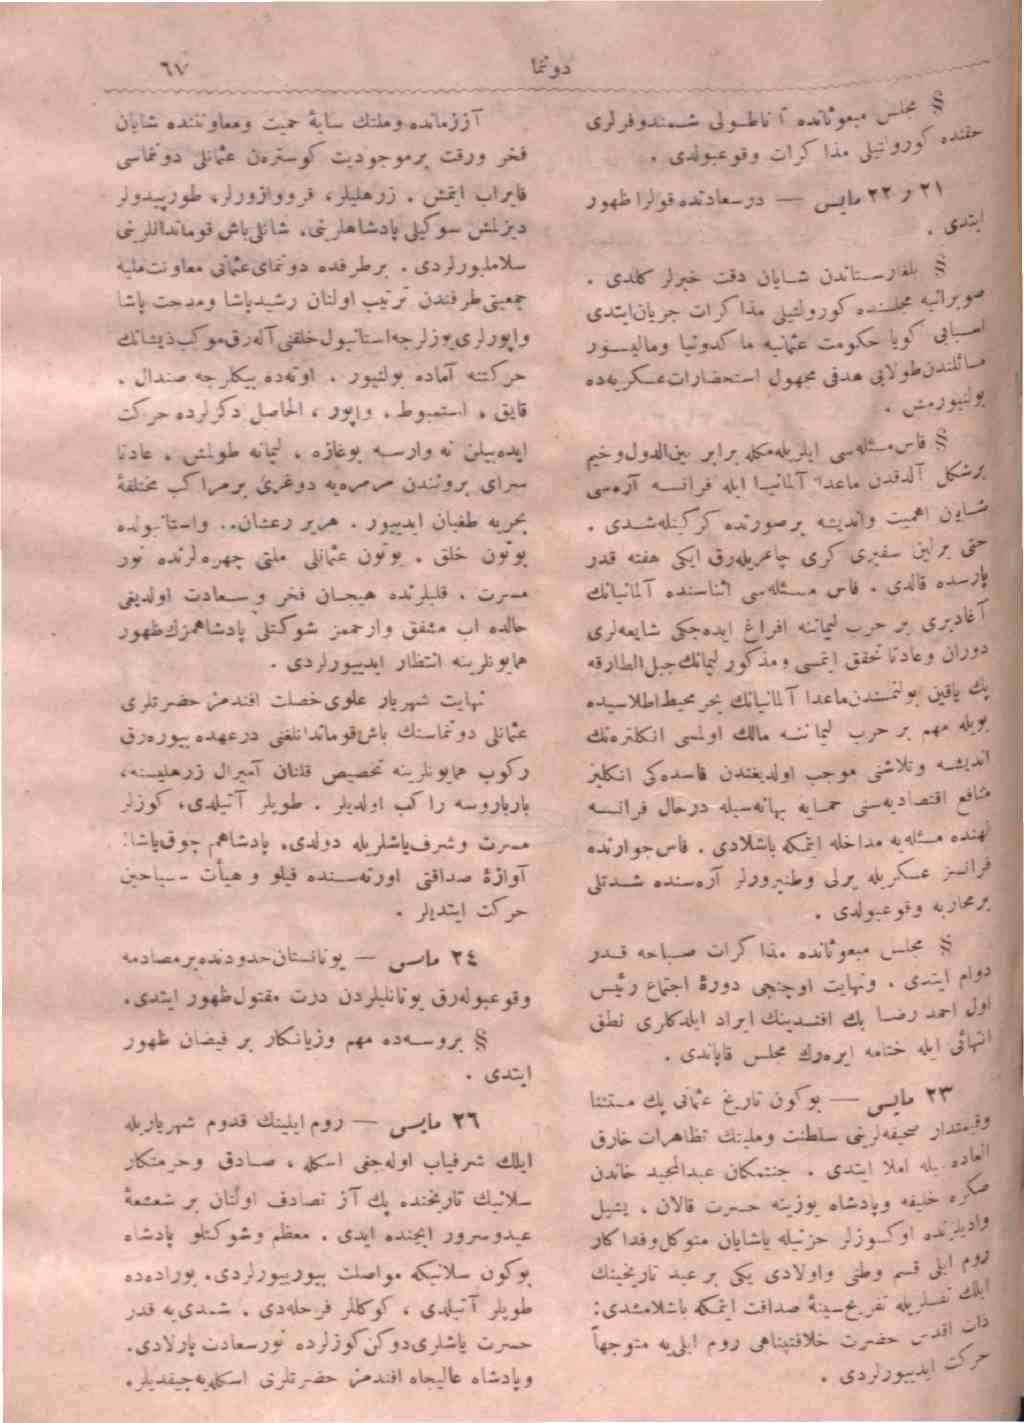 دوننما
٦٧
§ مجلس مبعوثانده آناطولی شمندوفرلری
حقنده كورولتیلی مذاكرات وقوعبولدی .
٢١ و ٢٢ مایس — درسعادتده قولرا ظهور
ایتدی .
§ بلغارستاندن شایان دقت خبرلر كلدی .
صوبرانیه مجلسنده كورولتیلی مذاكرات جریان ایتدی
اسبابی كویا حكومت عثمانیه ماكدونیا ومالیسور
مسائلندن طولایی هدفی مجهول استحضارات عسكریه‌ده
بولنیورمش .
§ فاس مسئله‌سی ایلریله‌مكله برابر بین‌الدول وخیم
برشكل آلدقدن ماعدا آلمانیا ایله فرانسه آره‌سی
شایان اهمیت واندیشه برصورتده كركینله‌شدی .
حتی برلین سفیری كری چاغریله‌رق ایكی هفته قدر
پارسده قالدی . فاس مسئله‌سی اثناسنده آلمانیانك
آغادیری بر حرب لیماننه افراغ ایده‌جكی شایعه‌لری
دوران وعادتا تحقق ایتمسی ومذكور لیمانك جبل‌الطارقه
پك یاقین بولنمسندن ماعدا آلمانیانك بحر محیط اطلاسیده
بویله مهم بر حرب لیماننه مالك اولمسی انكلتره‌نك
اندیشه وتلاشنی موجب اولدیغندن فاسده‌كی انكلیز
منافع اقتصادیه‌سنی حمایه بهانه‌سیله درحال فرانسه
لهنده مسئله‌یه مداخله ایتمكه باشلادی . فاس جوارنده
فرانسز عسكریله یرلی وطنپرورلر آره‌سنده شدتلی
برمحاربه وقوعبولدی .
§ مجلس مبعوثانده مذاكرات صباحه قدر
دوام ایتدی . ونهایت اوچنجی دورهٔ اجتماع رئیس
اول احمد رضا بك افندینك ایراد ایلدكلری نطق
انتهائی ایله ختامه ایره‌رك مجلس قاپاندی .
٢٣ مایس — بوكون تاریخ عثمانی پك مستثنا
وقیمتدار صحیفه‌لرینی سلطنت وملیتك تظاهرات خارق
العاده‌سیله املا ایتدی . جنتمكان عبدالمجید خاندن
صكره خلیفه وپادشاه یوزینه حسرت قالان ، یشیل
وادیلرنده اوكسوزلر حزنیله یاشایان متوكل وفداكار
روم ایلی قسم وطنی واولادی یكی بر عید تاریخینك
ایلك نفسلریله تفریح سینهٔ صداقت ایتمكه باشلامشدی :
ذات اقدس حضرت خلافتپناهی روم ایلی‌یه متوجهاً
حركت ایدییورلردی .
آززمانده وملتك سایهٔ حمیت ومعاوننده شایان
فخر ورقت برموجودیت كوسترەن عثمانلی دوننماسی
فایراب ایتمش . زرهلیلر ، قرووازورلر ، طورپیدولر
دیزلمش سوكیلی پادشاهلرینی ، شانلی باش قوماندانلرینی
سلاملیورلردی . برطرفده دوننمای عثمانی معاونت ملیه
جمعیتی طرفندن ترتیب اولنان رشیدپاشا ومدحت پاشا
واپورلری یوزلرجه استانبول خلقنی آله‌رق موكب ذیشانك
حركتنه آماده بولنیور . اوته‌ده بیكلرجه صندال ،
قایق ، استمبوط ، واپور ، الحاصل دكزلرده حركت
ایده‌بیلن نه وارسه بوغازه ، لیمانه طولمش ، عادتا
سرای بروننندن مرمره‌یه دوغری برمراكب مختلفهٔ
بحریه طغیان ایدییور . هریر رعشان.. واستانبولده
بوتون خلق . بوتون عثمانلی ملتی چهره‌لرنده نور
مسرت ، قلبلرنده هیجان فخر و سعادت اولدیغی
حالده اب مشفق وارحممز شوكتلی پادشاهمزك ظهور
همایونلرینه انتظار ایدییورلردی .
نهایت شهریار علوی خصلت افندمز حضرتلری
عثمانلی دوننماسنك باش قوماندانلغنی درعهده بیوره‌رق
ركوب همایونلرینه تخصیص قلنان آمیرال زرهلیسنه ،
بارباروسه راكب اولدیلر . طوپلر آتیلدی ، كوزلر
مسرت وشرف یاشلریله دولدی . پادشاهم چوق یاشا !
آوازهٔ صداقتی اورته‌سنده فیلو و هیأت سیاحین
حركت ایتدیلر .
٢٤ مایس — یونانستان حدودنده برمصادمه
وقوعبوله‌رق یونانلیلردن درت مقتول ظهور ایتدی .
§ بروسه‌ده مهم وزیانكار بر فیضان ظهور
ایتدی .
٢٦ مایس — روم ایلینك قدوم شهریاریله
ایلك شرفیاب اوله‌جغی اسكله ، صادق وحرمتكار
سلانیك تاریخنده پك آز تصادف اولنان بر شعشعهٔ
عیدوسرور ایچنده ایدی . معظم وشوكتلو پادشاه
بوكون سلانیكه مواصلت بیورییورلردی . بوراده‌ده
طوپلر آتیلدی ، كوكللر فرحله‌دی . شمدی‌یه قدر
حسرت یاشلری دوكن كوزلرده نورسعادت پارلادی .
وپادشاه عالیجاه افندمز حضرتلری اسكله‌یه چیقدیلر .